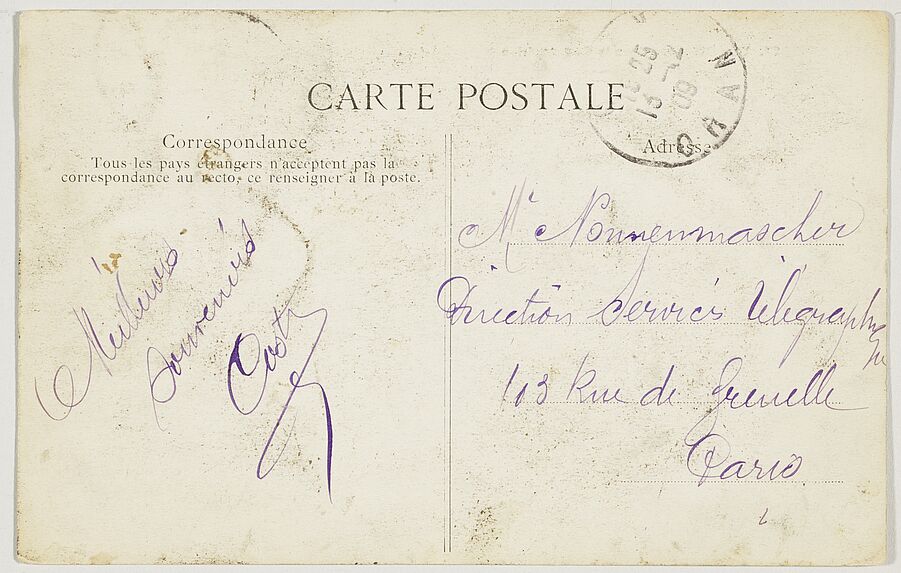 CARTE POSTALE
Correspondance
Tous les pays étrangers n'acceptent pas la
correspondance au recto, ce renseigner à la poste.
Adresse
ORAN
25
13 -12
09
Meilleurs
souvenirs
Mr Nonnenmascher
Direction Services Télégraphique
103 Rue de Grenelle
Paris